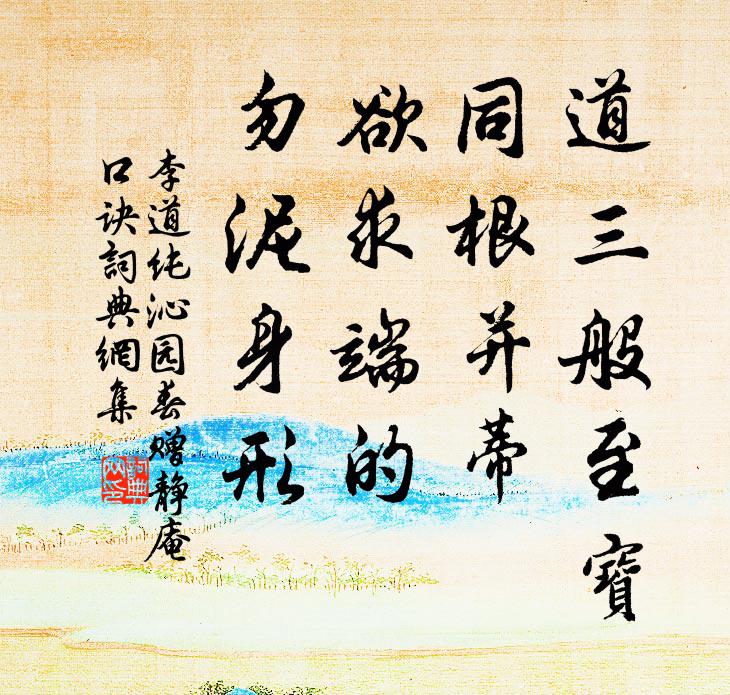 道三般至寶
同根并蒂
欲求端的
勿泥身形
李道纯沁园春赠静庵
口诀詞典網集